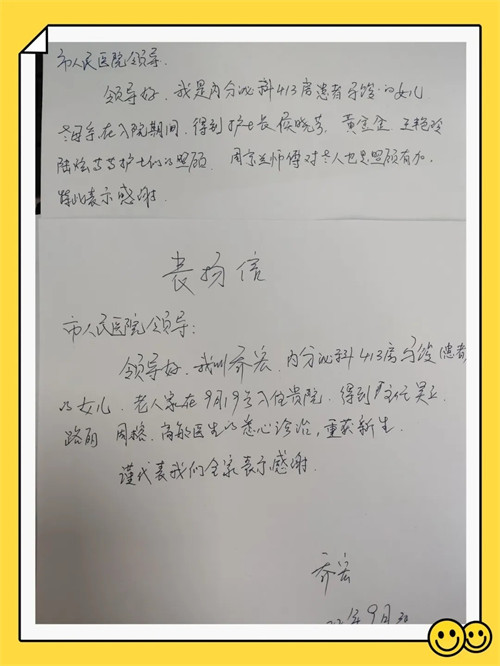 市人民医院领导.
领导好. 我是内分泌科413房患者 的女儿
母亲在入院期间, 得到护士长 侯晓芳、黄宝金 王艳玲
陆 等等护士们的照顾. 周 师傅对老人也是照顾有加,
特此表示感谢.
表扬信
市人民医院领导:
领导好, 我叫乔宏, 内分泌科413房 (患者)
的女儿. 老人家在9月19号入住贵院. 得到 主任 吴
路 周格、高敏医生的悉心诊治, 重获新生.
谨代表我们全家表示感谢.
乔宏
年9月